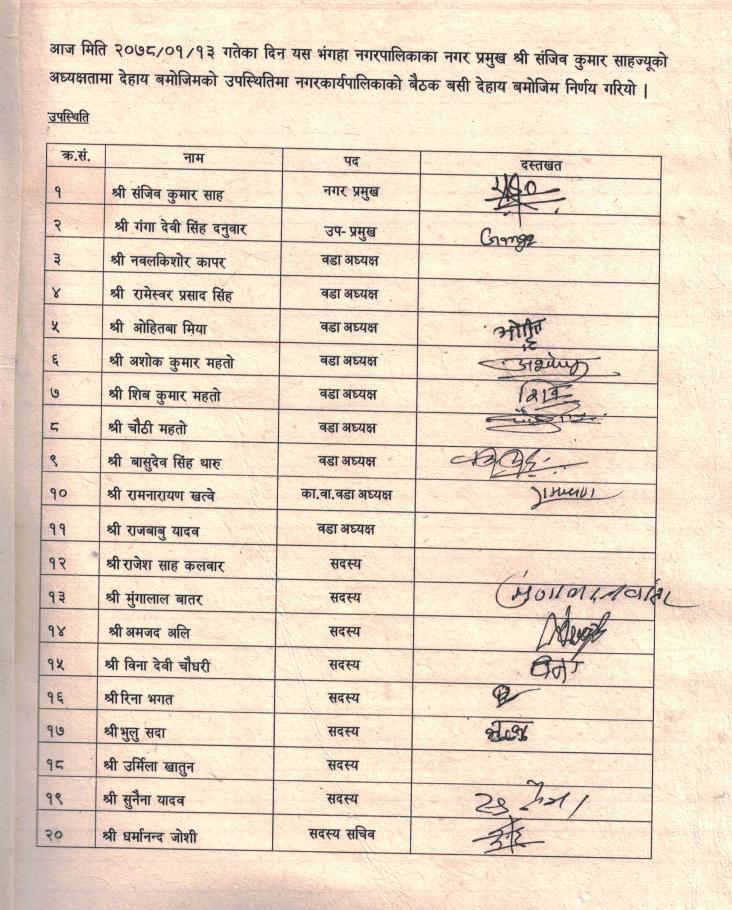 आज मिति २०७८/०१/१३ गतेका दिन यस भंगहा नगरपालिकाका नगर प्रमुख श्री संजिव कुमार साहज्यूको
अध्यक्षतामा देहाय बमोजिमको उपस्थितिमा नगरकार्यपालिकाको बैठक बसी देहाय बमोजिम निर्णय गरियो |
उपस्थिति
क्र.सं. नाम पद दस्तखत
१ श्री संजिव कुमार साह नगर प्रमुख
२ श्री गंगा देवी सिंह दनुवार उप- प्रमुख
३ श्री नवलकिशोर कापर वडा अध्यक्ष
४ श्री रामेस्वर प्रसाद सिंह वडा अध्यक्ष
५ श्री ओहितबा मिया वडा अध्यक्ष
६ श्री अशोक कुमार महतो वडा अध्यक्ष
७ श्री शिब कुमार महतो वडा अध्यक्ष
८ श्री चौठी महतो वडा अध्यक्ष
९ श्री बासुदेव सिंह थारु वडा अध्यक्ष
१० श्री रामनारायण खत्वे का.वा.वडा अध्यक्ष
११ श्री राजबाबु यादव वडा अध्यक्ष
१२ श्री राजेश साह कलवार सदस्य
१३ श्री मुंगालाल बातर सदस्य
१४ श्री अमजद अलि सदस्य
१५ श्री विना देवी चौधरी सदस्य
१६ श्री रिना भगत सदस्य
१७ श्री भुलु सदा सदस्य
१८ श्री उर्मिला खातुन सदस्य
१९ श्री सुनैना यादव सदस्य
२० श्री धर्मानन्द जोशी सदस्य सचिव